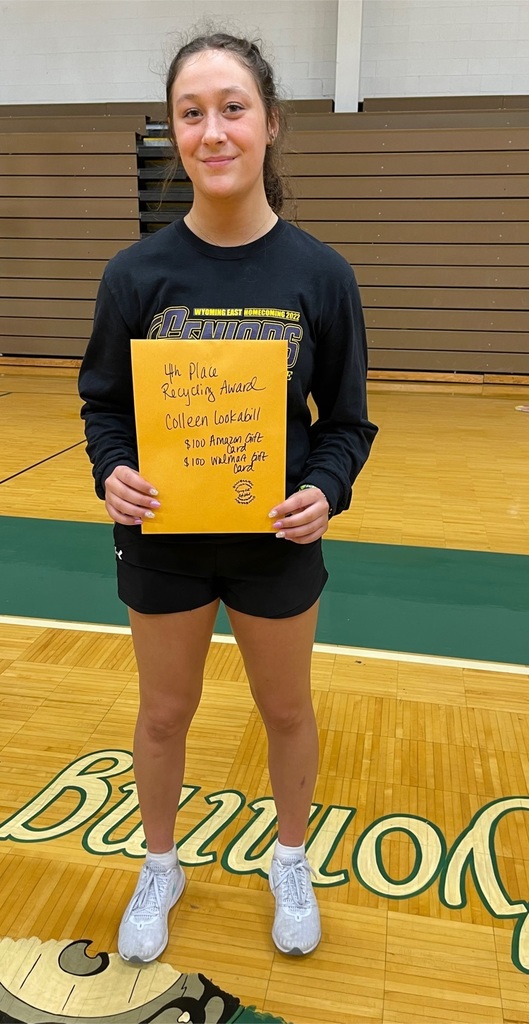 WYOMING EAST HOMECOMING 2022
SENIORS
4th Place
Recycling Award
Colleen Lookabill
$100 Amazon Gift
Card
$100 Walmart Gift
Card
Wyoming